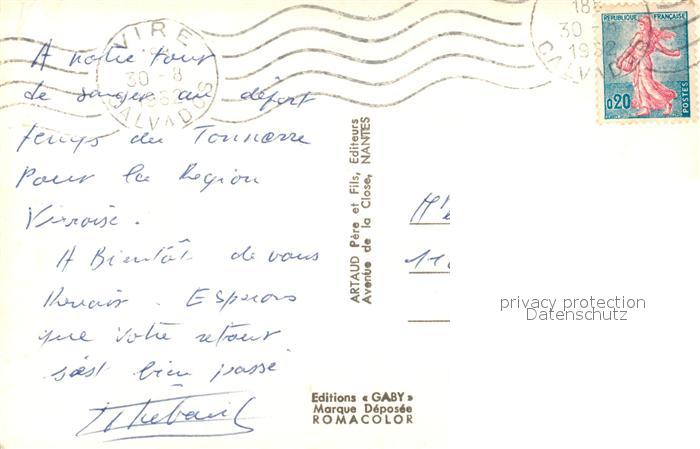 VIRE
30-8
1962
CALVADOS
18H
30-
1962
CALVADOS
REPUBLIQUE FRANÇAISE
0,20
POSTES
A notre tour
de songer au départ
temps du Tonnerre
Pour la Region
Viroise.
A Bientôt de vous
Revoir. Esperons
que votre retour
s'est bien passé
ARTAUD Père et Fils, Editeurs
Avenue de la Close, NANTES
privacy protection
Datenschutz
Editions « GABY »
Marque Déposée
ROMACOLOR